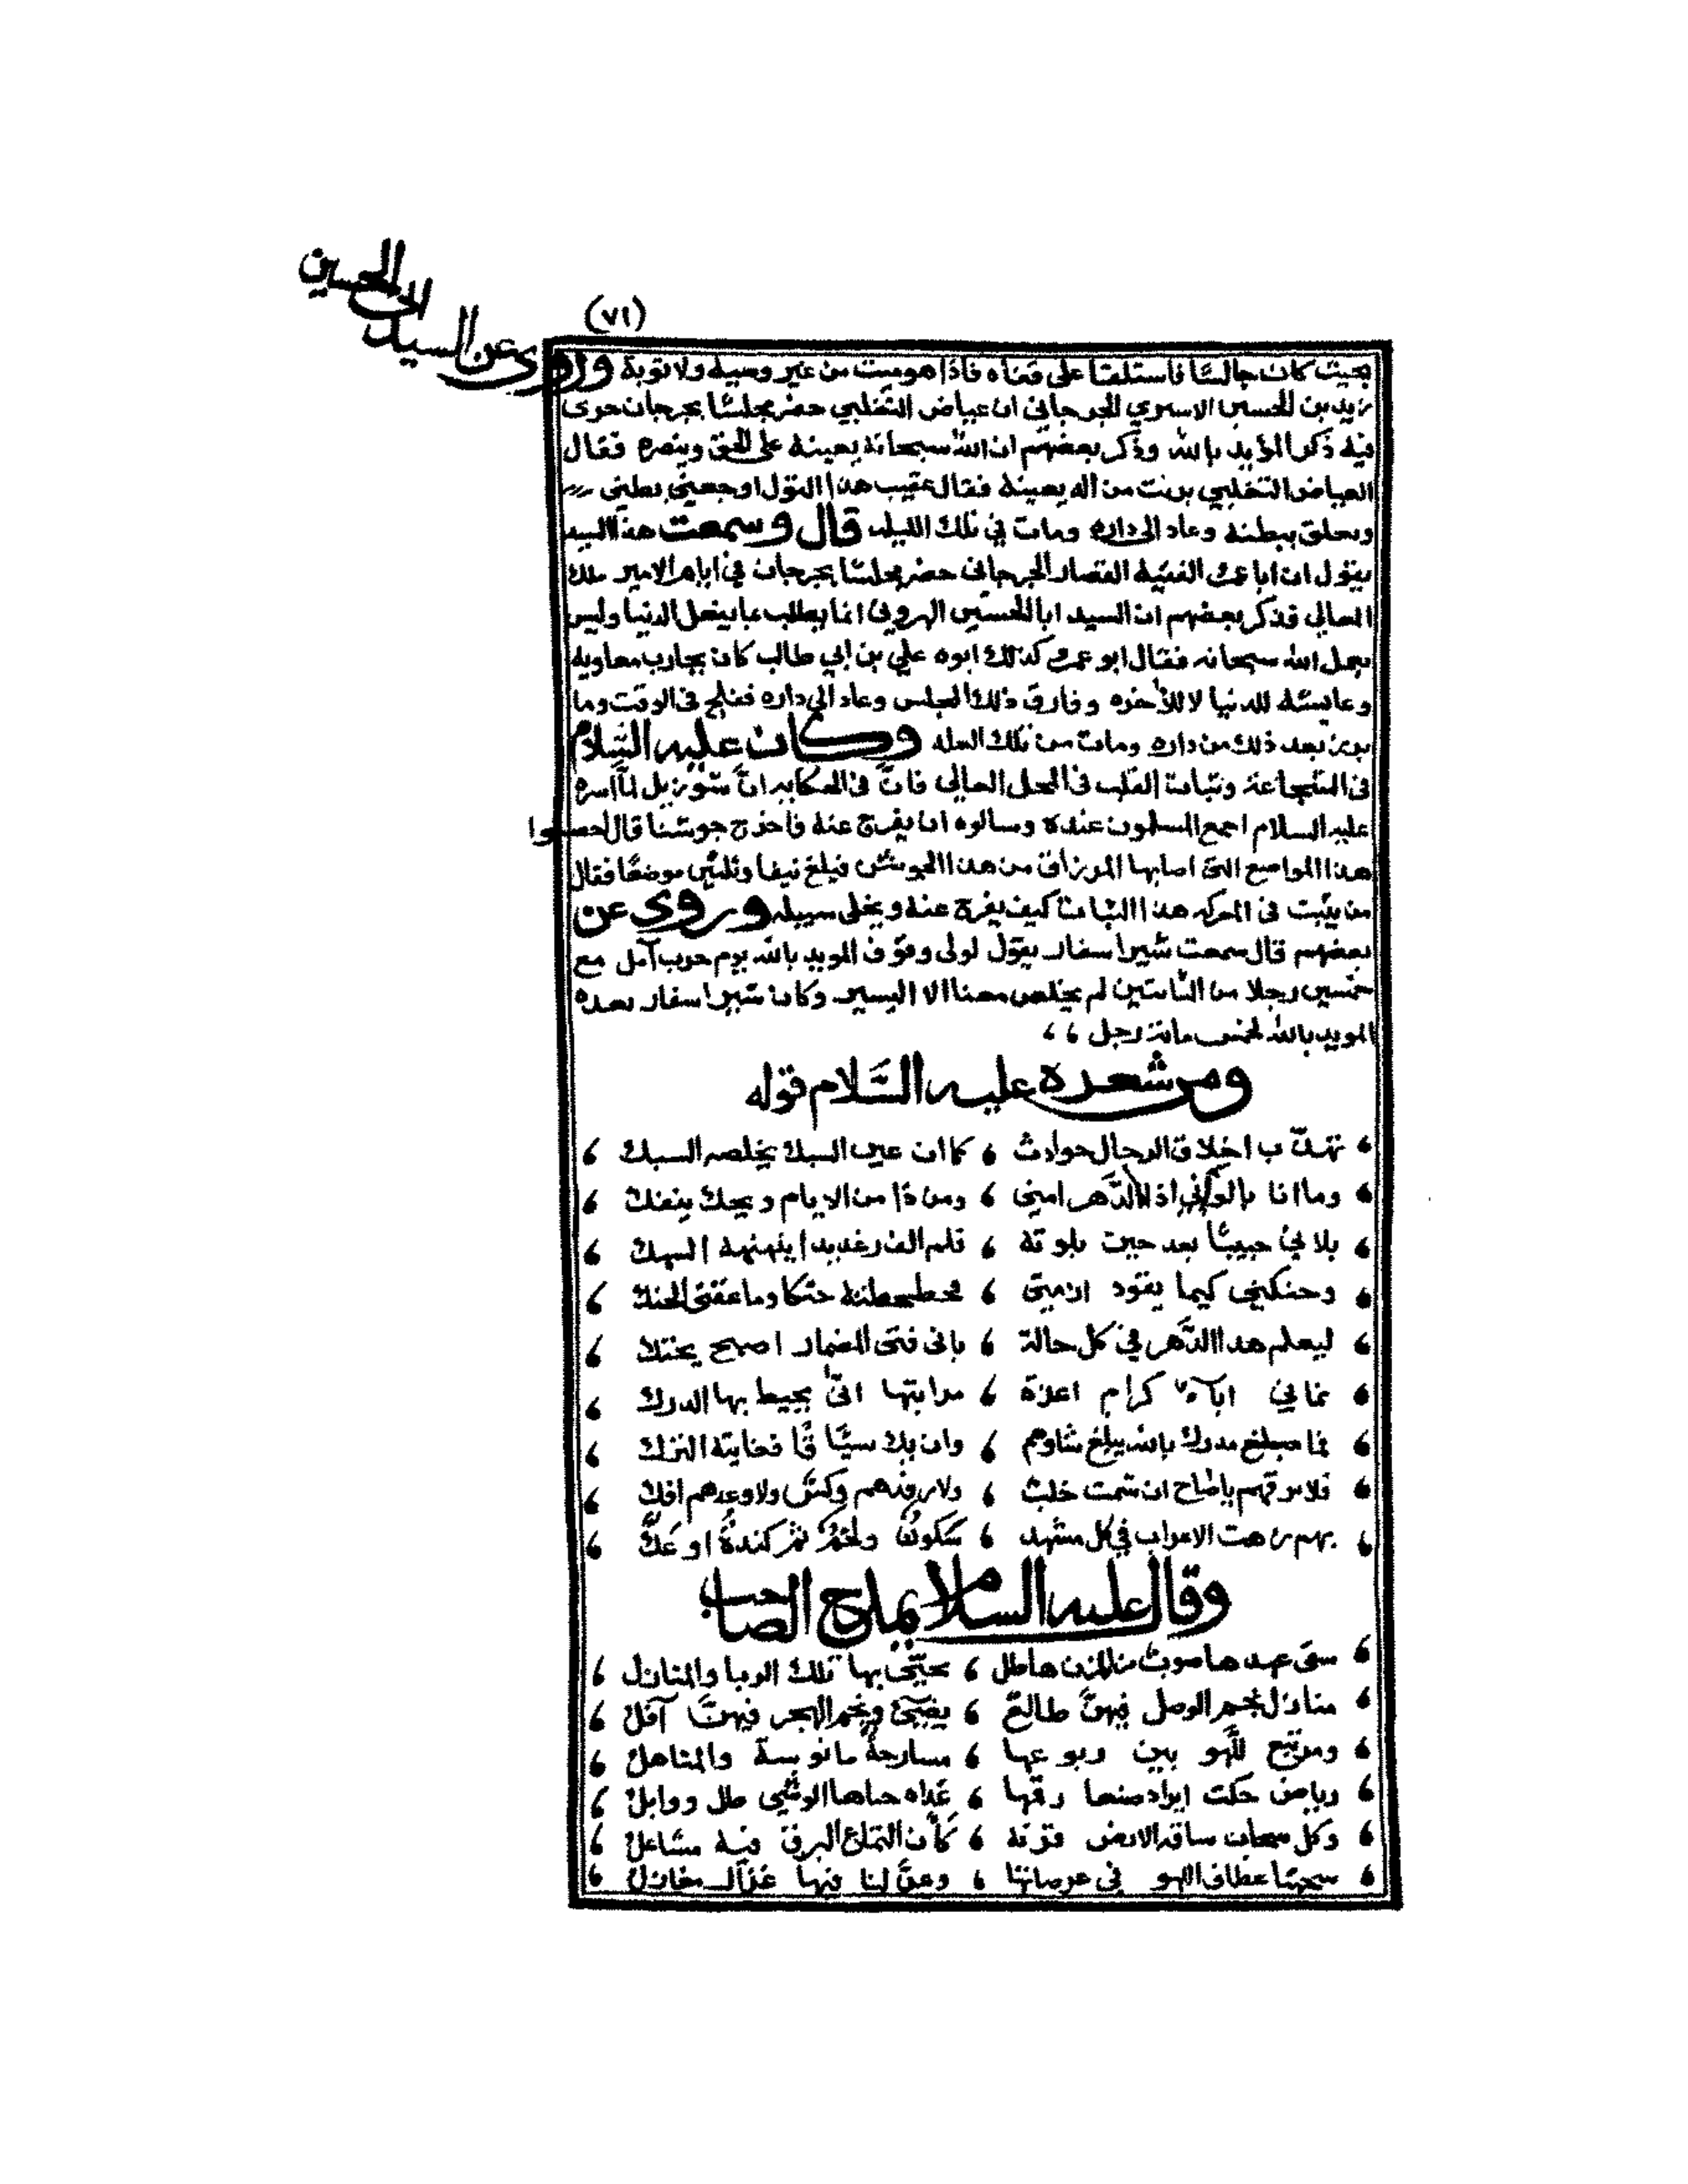 (٧١)
بحيث كان جالسًا فاستلقا على قفاه فاذا هو ميت من غير وصيه ولا توبة وروى عن السيد ابي الحسين
زيد بن الحسين الجرجاني ان عياض الثغلبي حضر مجلسًا بجرجان جرى
فيه ذكر المؤيد بالله وذكر بعضهم ان الله سبحانه يعينه على الحق وينصره فقال
العياض التغلبي برئت من اله يعينه فقال عقيب هذا القول اوجعني بطني
وتعلق ببطنه وعاد الى داره ومات في تلك الليله قال وسمعت هذا السيد
يقول ان ابا عمر الفقيه القصار الجرجاني حضر مجلسًا بجرجان في ايام الامير ملك
المعالي فذكر بعضهم ان السيد ابا الحسين الهروني انما يطلب بما يفعل الدنيا وليس
يعمل الله سبحانه فقال ابو عمر كذلك ابوه علي بن ابي طالب كان يحارب معاوية
وعايشه للدنيا لا للأخره وفارق ذلك المجلس وعاد الى داره ففلج في الوقت وما
برئ بعد ذلك من داره ومات من تلك العله وكان عليه السلام
في الشجاعة وثبات القلب في المحل العالي فانّ في الحكايه انّ شوزيل لمّا اسره
عليه السلام اجمع المسلمون عنده وسالوه ان يفرج عنه فاخرج جوشنا قال احصوا
هذا المواضع التي اصابها المزراق من هذا الجوشن فبلغ نيفا وثلثين موضعًا فقال
من يثبت في المعركه هذا الثبات كيف يفرج عنه ويخلى سبيله وروي عن
بعضهم قال سمعت شيراسفار يقول لولى وقوف المويد بالله يوم حرب آمل مع
خمسين رجلا من الثابتين لم يخلص معنا الا اليسير وكان شيراسفار بعده
المويد بالله لخمس مائة رجل
ومن شعره عليه السّلام قوله
تهذّب اخلاق الرجال حوادث ، كما ان عين السبك يخلصه السبك
وما انا بالواني اذا الدّهر امني ، ومن ذا من الايام ويحك ينفك
بلاني حينًا بعد حين بلوته ، فلم الف رعديدا ينهنهه السهك
وحنكني كيما يقود ازمتي ،
ليعلم هذا الدّهر في كل حالة ، باني فتى المضمار اصبح يحتك
نماني اباء كرام اعزة ، مراتبها انى يحيط بها الدرك
فما مبلغ مدرك بالله يبلغ شاوهم ، وان يك سبّاقًا فغايته الترك
فلا برقهم ياصاح ان شمت خلب ، ولا رفدهم وكسٌ ولا وعدهم افك
بهم زهت الاعراب في كل مشهد ، سَكونٌ ولخمٌ ثم كندةُ او عَكّ
وقال عليه السلام يمدح الصاحب
سقى عهدها صوب من المزن هاطل ، تحيّى بها تلك الربا والمنازل
منازل نجم الوصل فيهنّ طالعٌ ، يضيئ ونجم الهجر فيهنّ آفل
ومرتبع للّهو بين ربوعها ، مسارحه مانوسة والمناهل
رياض حكت ابراد صنعا رقمها ، غداه حباها الوشي طل ووابل
وكل سحاب ساقه الارض قربه ، كأن التماع البرق فيه مشاعل
سحبنا عطاف اللهو في عرصاتها ، وعنّ لنا فيها غزال مغازل